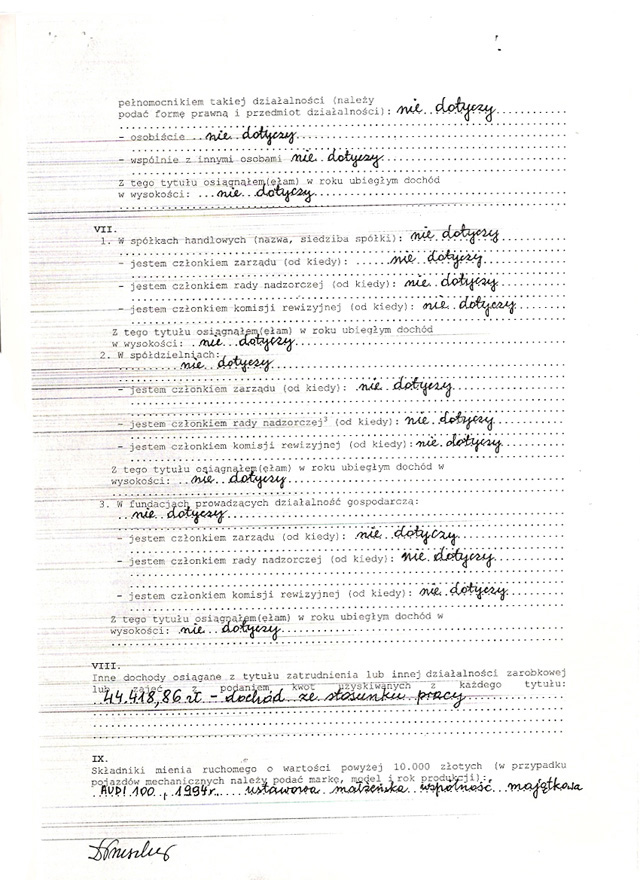 pełnomocnikiem takiej działalności (należy
podać formę prawną i przedmiot działalności): nie dotyczy
- osobiście nie dotyczy
- wspólnie z innymi osobami nie dotyczy
Z tego tytułu osiągnąłem(ęłam) w roku ubiegłym dochód
w wysokości: nie dotyczy
VII.
1. W spółkach handlowych (nazwa, siedziba spółki): nie dotyczy
- jestem członkiem zarządu (od kiedy): nie dotyczy
- jestem członkiem rady nadzorczej (od kiedy): nie dotyczy
- jestem członkiem komisji rewizyjnej (od kiedy): nie dotyczy
Z tego tytułu osiągnąłem(ęłam) w roku ubiegłym dochód
w wysokości: nie dotyczy
2. W spółdzielniach:
nie dotyczy
- jestem członkiem zarządu (od kiedy): nie dotyczy
- jestem członkiem rady nadzorczej³ (od kiedy): nie dotyczy
- jestem członkiem komisji rewizyjnej (od kiedy): nie dotyczy
Z tego tytułu osiągnąłem(ęłam) w roku ubiegłym dochód w
wysokości: nie dotyczy
3. W fundacjach prowadzących działalność gospodarczą:
nie dotyczy
- jestem członkiem zarządu (od kiedy): nie dotyczy
- jestem członkiem rady nadzorczej (od kiedy): nie dotyczy
- jestem członkiem komisji rewizyjnej (od kiedy): nie dotyczy
Z tego tytułu osiągnąłem(ęłam) w roku ubiegłym dochód w
wysokości: nie dotyczy
VIII.
Inne dochody osiągane z tytułu zatrudnienia lub innej działalności zarobkowej
lub zajęć, z podaniem kwot uzyskiwanych z każdego tytułu:
44.418,86 zł - dochód ze stosunku pracy
IX.
Składniki mienia ruchomego o wartości powyżej 10.000 złotych (w przypadku
pojazdów mechanicznych należy podać markę, model i rok produkcji):
AUDI 100, 1994r. ustawowa małżeńska wspólność majątkowa